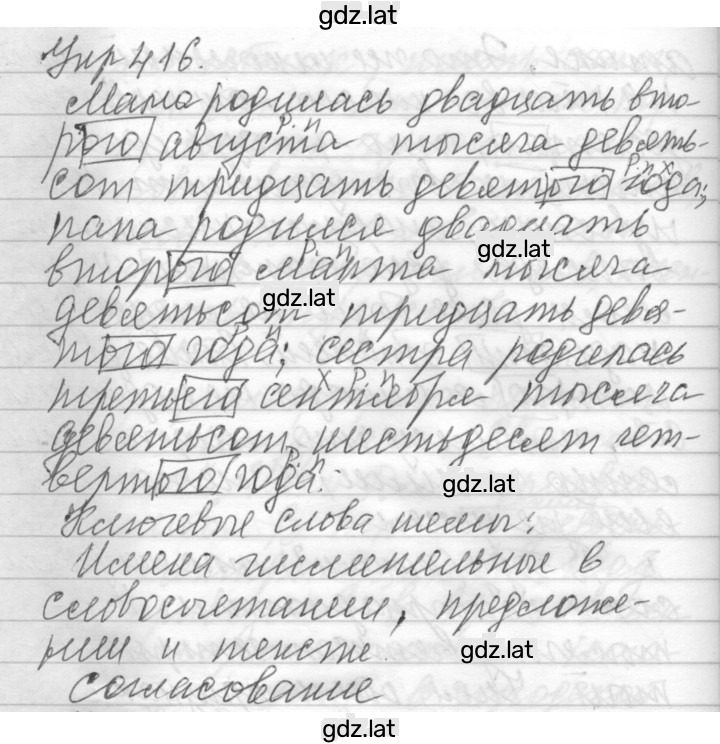 gdz.lat
Упр 416.
Мама родилась двадцать вто-
рого августа тысяча девять-
сот тридцать девятого года;
папа родился двадцать
второго марта тысяча
gdz.lat
девятьсот тридцать девя-
gdz.lat
того года; сестра родилась
третьего сентября тысяча
девятьсот шестьдесят чет-
вертого года.
gdz.lat
Ключевые слова темы:
Имена числительные в
словосочетании, предложе-
нии и тексте.
gdz.lat
Согласование
gdz.lat